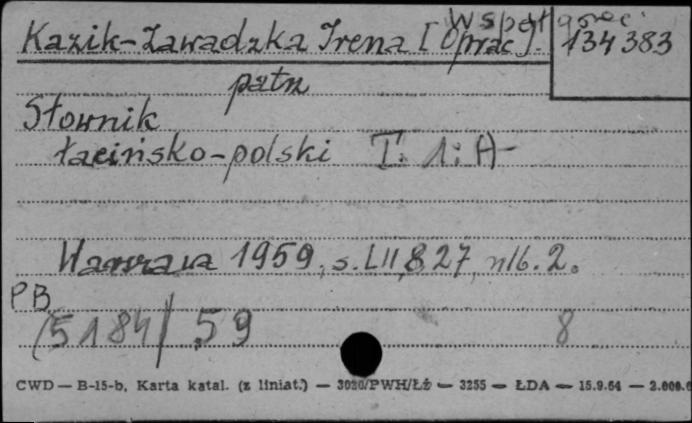 Współprac
Kazik-Zawadzka Irena [Oprac]. 134383
patrz
Słownik
łaciński-polski T. 1: A-
Warszawa 1959, s. LII, 827, nlb. 2.
PB
(5184/59 8
CWD — B-15-b, Karta katal. (z liniat.) — 3020/PWH/Łż — 3255 — ŁDA — 15.9.64 — 2.000.0